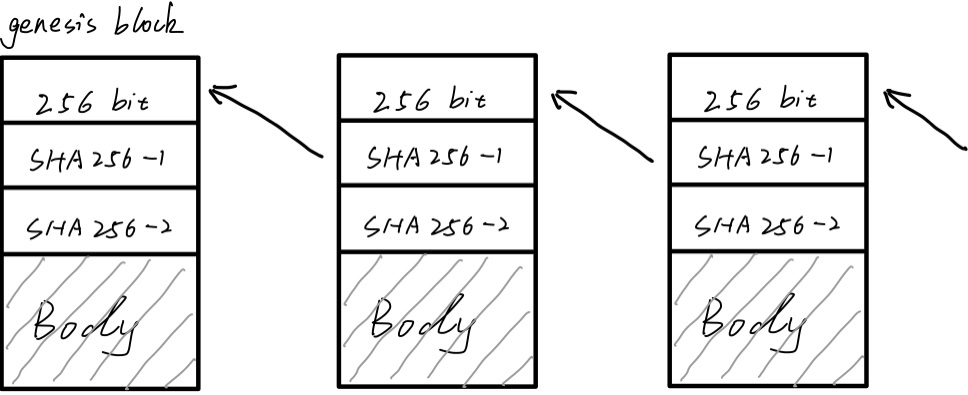 genesis block
256 bit
SHA 256-1
SHA 256-2
Body
256 bit
SHA 256-1
SHA 256-2
Body
256 bit
SHA 256-1
SHA 256-2
Body